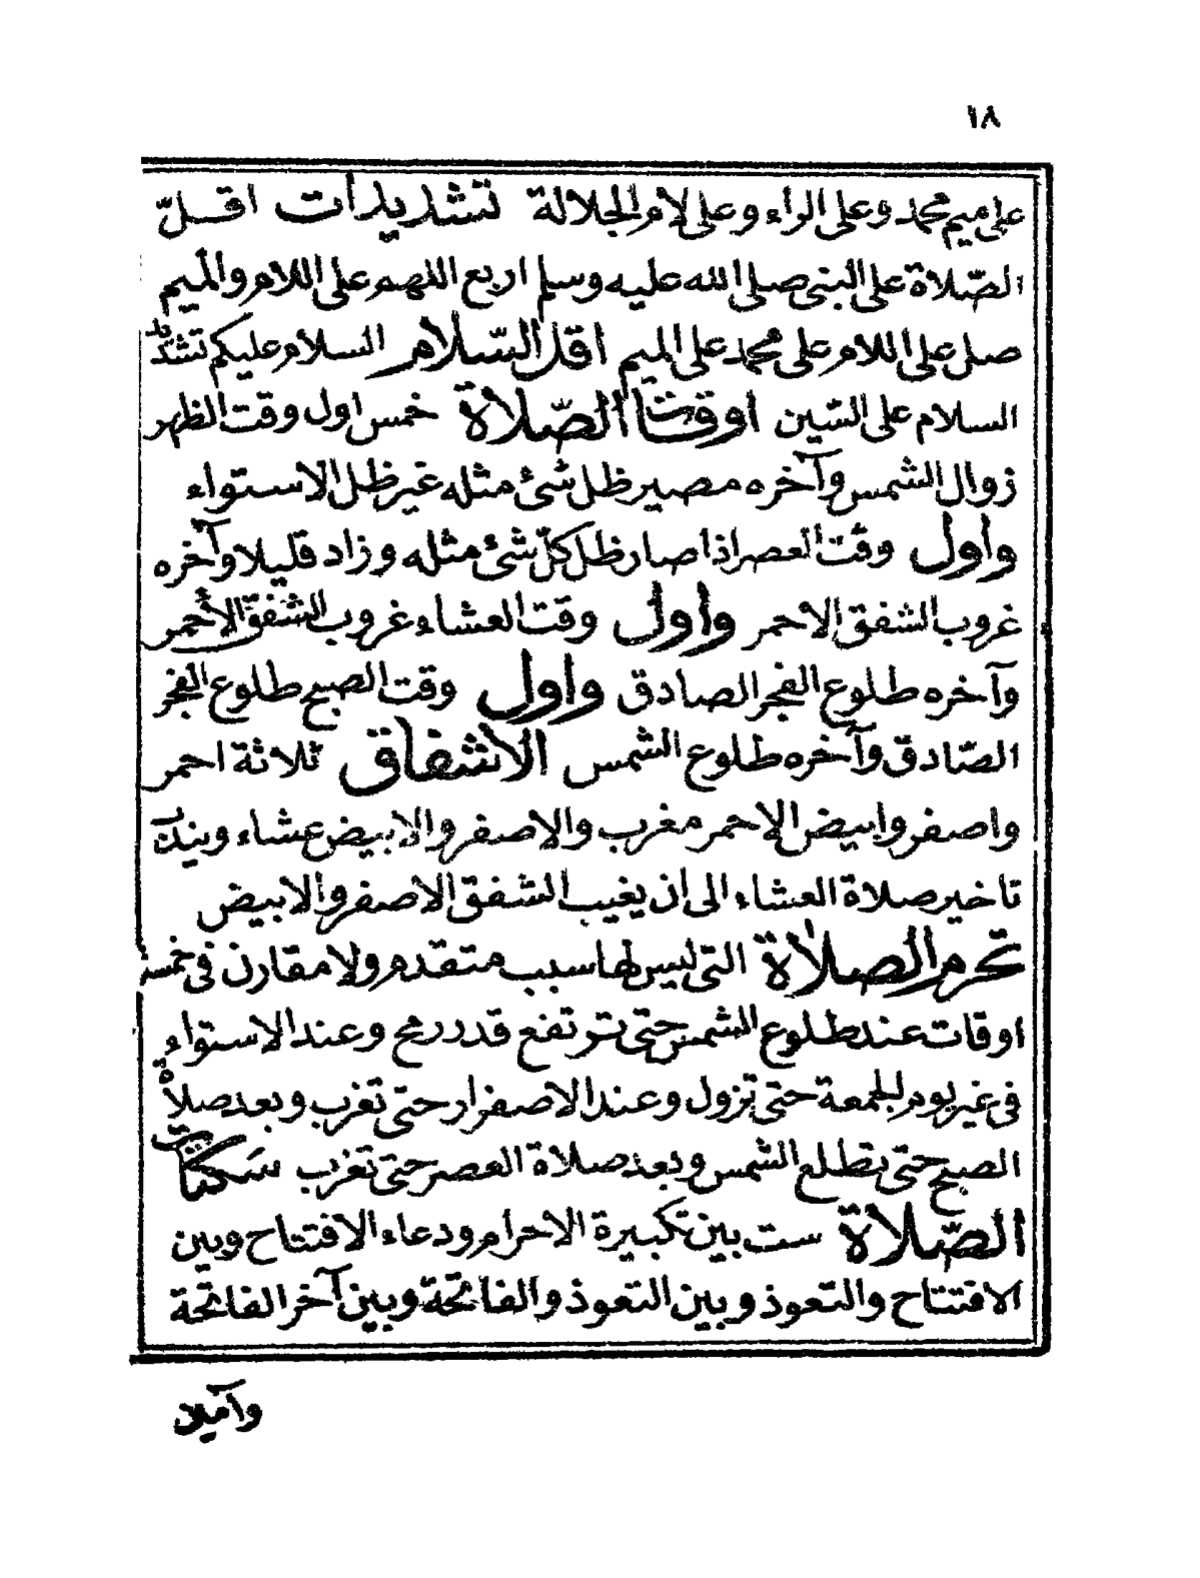 ١٨
على ميم محمد وعلى الراء وعلى لام الجلالة تشديدات اقلّ
الصّلاة على النبى صلى الله عليه وسلم اربع اللهم على اللام والميم
صل على اللام على محمد على الميم اقل السّلام السلام عليكم تشديد
السلام على السّين اوقات الصّلاة خمس اول وقت الظهر
زوال الشمس وآخره مصير ظل شئ مثله غير ظل الاستواء
واول وقت العصر اذا صار ظل كلّ شئ مثله وزاد قليلا وآخره
غروب الشفق الاحمر واول وقت العشاء غروب الشفق الأحمر
وآخره طلوع الفجر الصادق واول وقت الصبح طلوع الفجر
الصّادق وآخره طلوع الشمس الاشفاق ثلاثة احمر
واصفر وابيض الاحمر مغرب والاصفر والابيض عشاء ويندب
تاخير صلاة العشاء الى ان يغيب الشفق الاصفر والابيض
تحرم الصلاة التى ليس لها سبب متقدم ولا مقارن فى خمسة
اوقات عند طلوع الشمس حتى ترتفع قدر رمح وعند الاستواء
فى غير يوم الجمعة حتى تزول وعند الاصفرار حتى تغرب وبعد صلاة
الصبح حتى تطلع الشمس وبعد صلاة العصر حتى تغرب سكتات
الصّلاة ست بين تكبيرة الاحرام ودعاء الافتتاح وبين
الافتتاح والتعوذ وبين التعوذ والفاتحة وبين آخر الفاتحة
وآمين